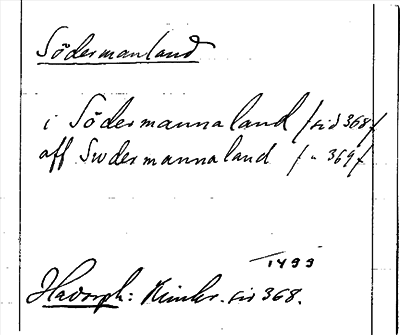 Södermanland
i Södermannaland /sid 368/
aff Swdermannaland / " 369/
1493
Hadorph: Rimkr. sid 368.